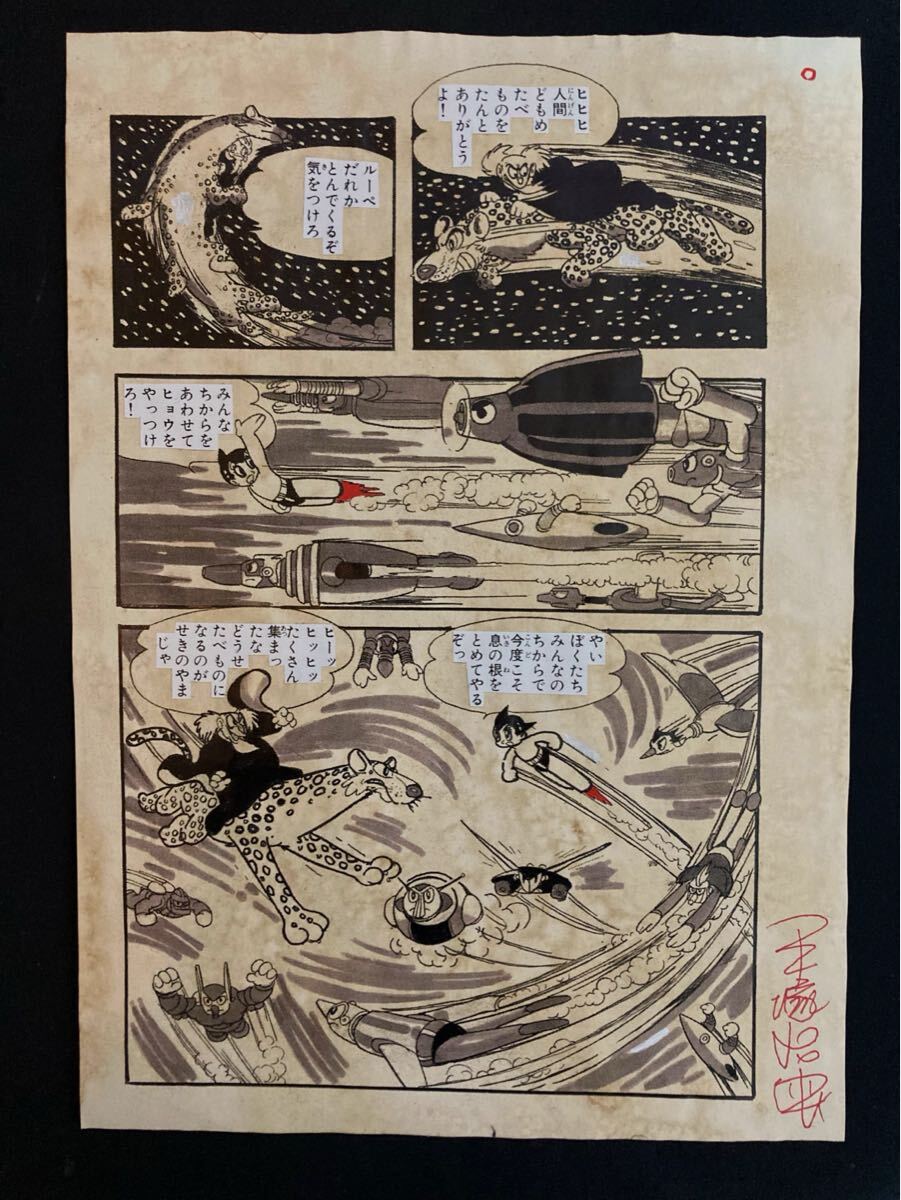 ヒヒヒ
人間
にんげん
どもめ
たべ
ものを
たんと
ありがとう
よ！
ルーペ
だれか
とんでくるぞ
気をつけろ
き
みんな
ちからを
あわせて
ヒョウを
やっつけ
ろ！
やい
ぼくたち
みんなの
ちからで
今度こそ
こんど
息の根を
いき
ね
とめてやる
ぞっ
ヒーッ
ヒッヒッ
たくさん
集まっ
あつ
たな
どうせ
たべものに
なるのが
せきのやま
じゃ
手塚治虫